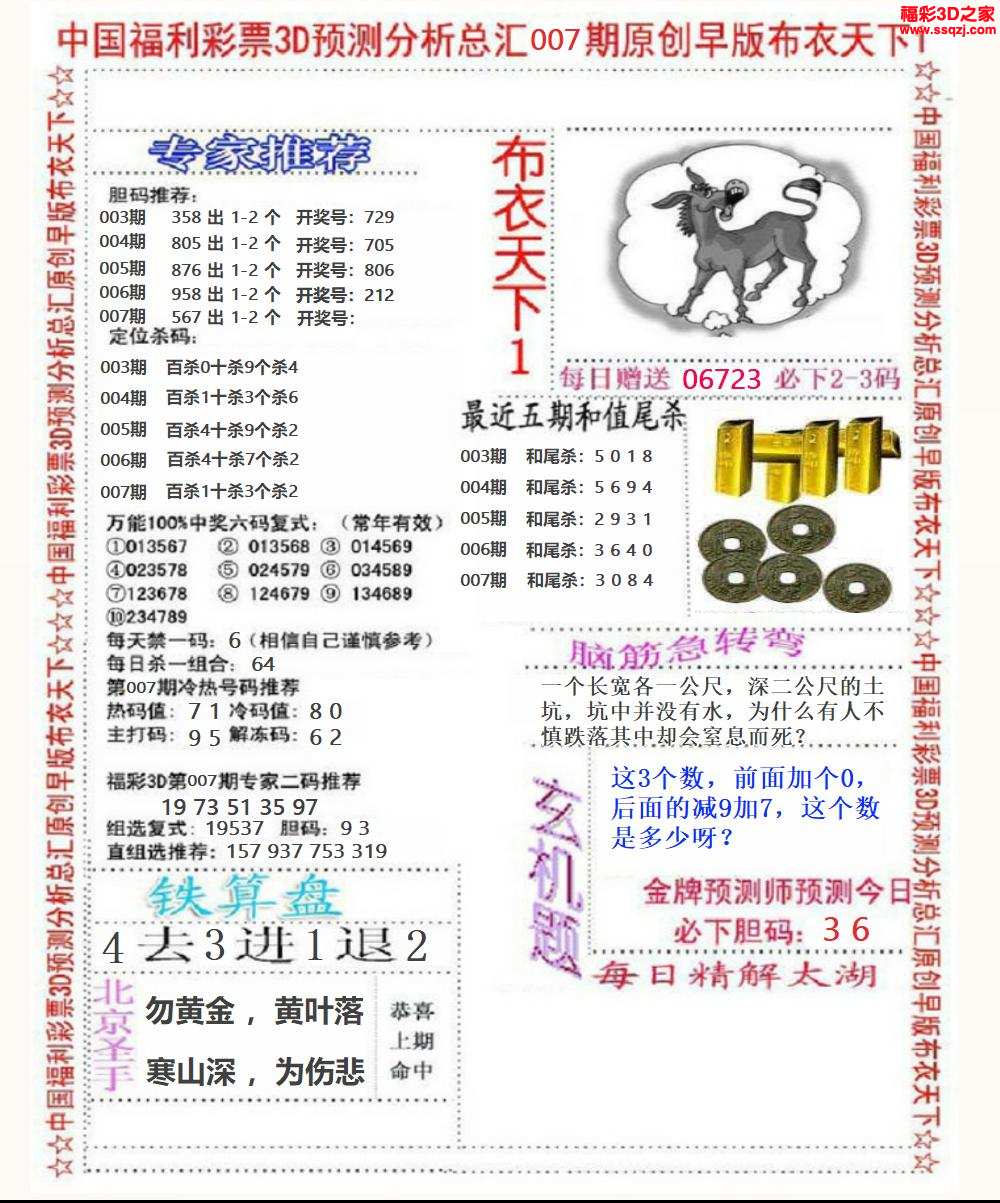 福彩3D之家
www.ssqzj.com
中国福利彩票3D预测分析总汇007期原创早版布衣天下1
☆☆中国福利彩票3D预测分析总汇原创早版布衣天下☆☆☆中国福利彩票3D预测分析总汇原创早版布衣天下☆☆
专家推荐
胆码推荐:
003期 358 出 1-2 个 开奖号: 729
004期 805 出 1-2 个 开奖号: 705
005期 876 出 1-2 个 开奖号: 806
006期 958 出 1-2 个 开奖号: 212
007期 567 出 1-2 个 开奖号:
定位杀码:
003期 百杀0十杀9个杀4
004期 百杀1十杀3个杀6
005期 百杀4十杀9个杀2
006期 百杀4十杀7个杀2
007期 百杀1十杀3个杀2
万能100%中奖六码复式: (常年有效)
①013567 ② 013568 ③ 014569
④023578 ⑤ 024579 ⑥ 034589
⑦123678 ⑧ 124679 ⑨ 134689
⑩234789
每天禁一码: 6(相信自己谨慎参考)
每日杀一组合: 64
第007期冷热号码推荐
热码值: 7 1 冷码值: 8 0
主打码: 9 5 解冻码: 6 2
福彩3D第007期专家二码推荐
19 73 51 35 97
组选复式: 19537 胆码: 9 3
直组选推荐: 157 937 753 319
铁算盘
4去3进1退2
北京圣手
勿黄金，黄叶落
寒山深，为伤悲
恭喜
上期
命中
布衣天下1
每日赠送 06723 必下2-3码
最近五期和值尾杀
003期 和尾杀: 5 0 1 8
004期 和尾杀: 5 6 9 4
005期 和尾杀: 2 9 3 1
006期 和尾杀: 3 6 4 0
007期 和尾杀: 3 0 8 4
脑筋急转弯
一个长宽各一公尺，深二公尺的土
坑，坑中并没有水，为什么有人不
慎跌落其中却会窒息而死？
玄机题
这3个数，前面加个0，
后面的减9加7，这个数
是多少呀？
金牌预测师预测今日
必下胆码: 3 6
每日精解太湖
☆☆中国福利彩票3D预测分析总汇原创早版布衣天下☆☆☆中国福利彩票3D预测分析总汇原创早版布衣天下☆☆